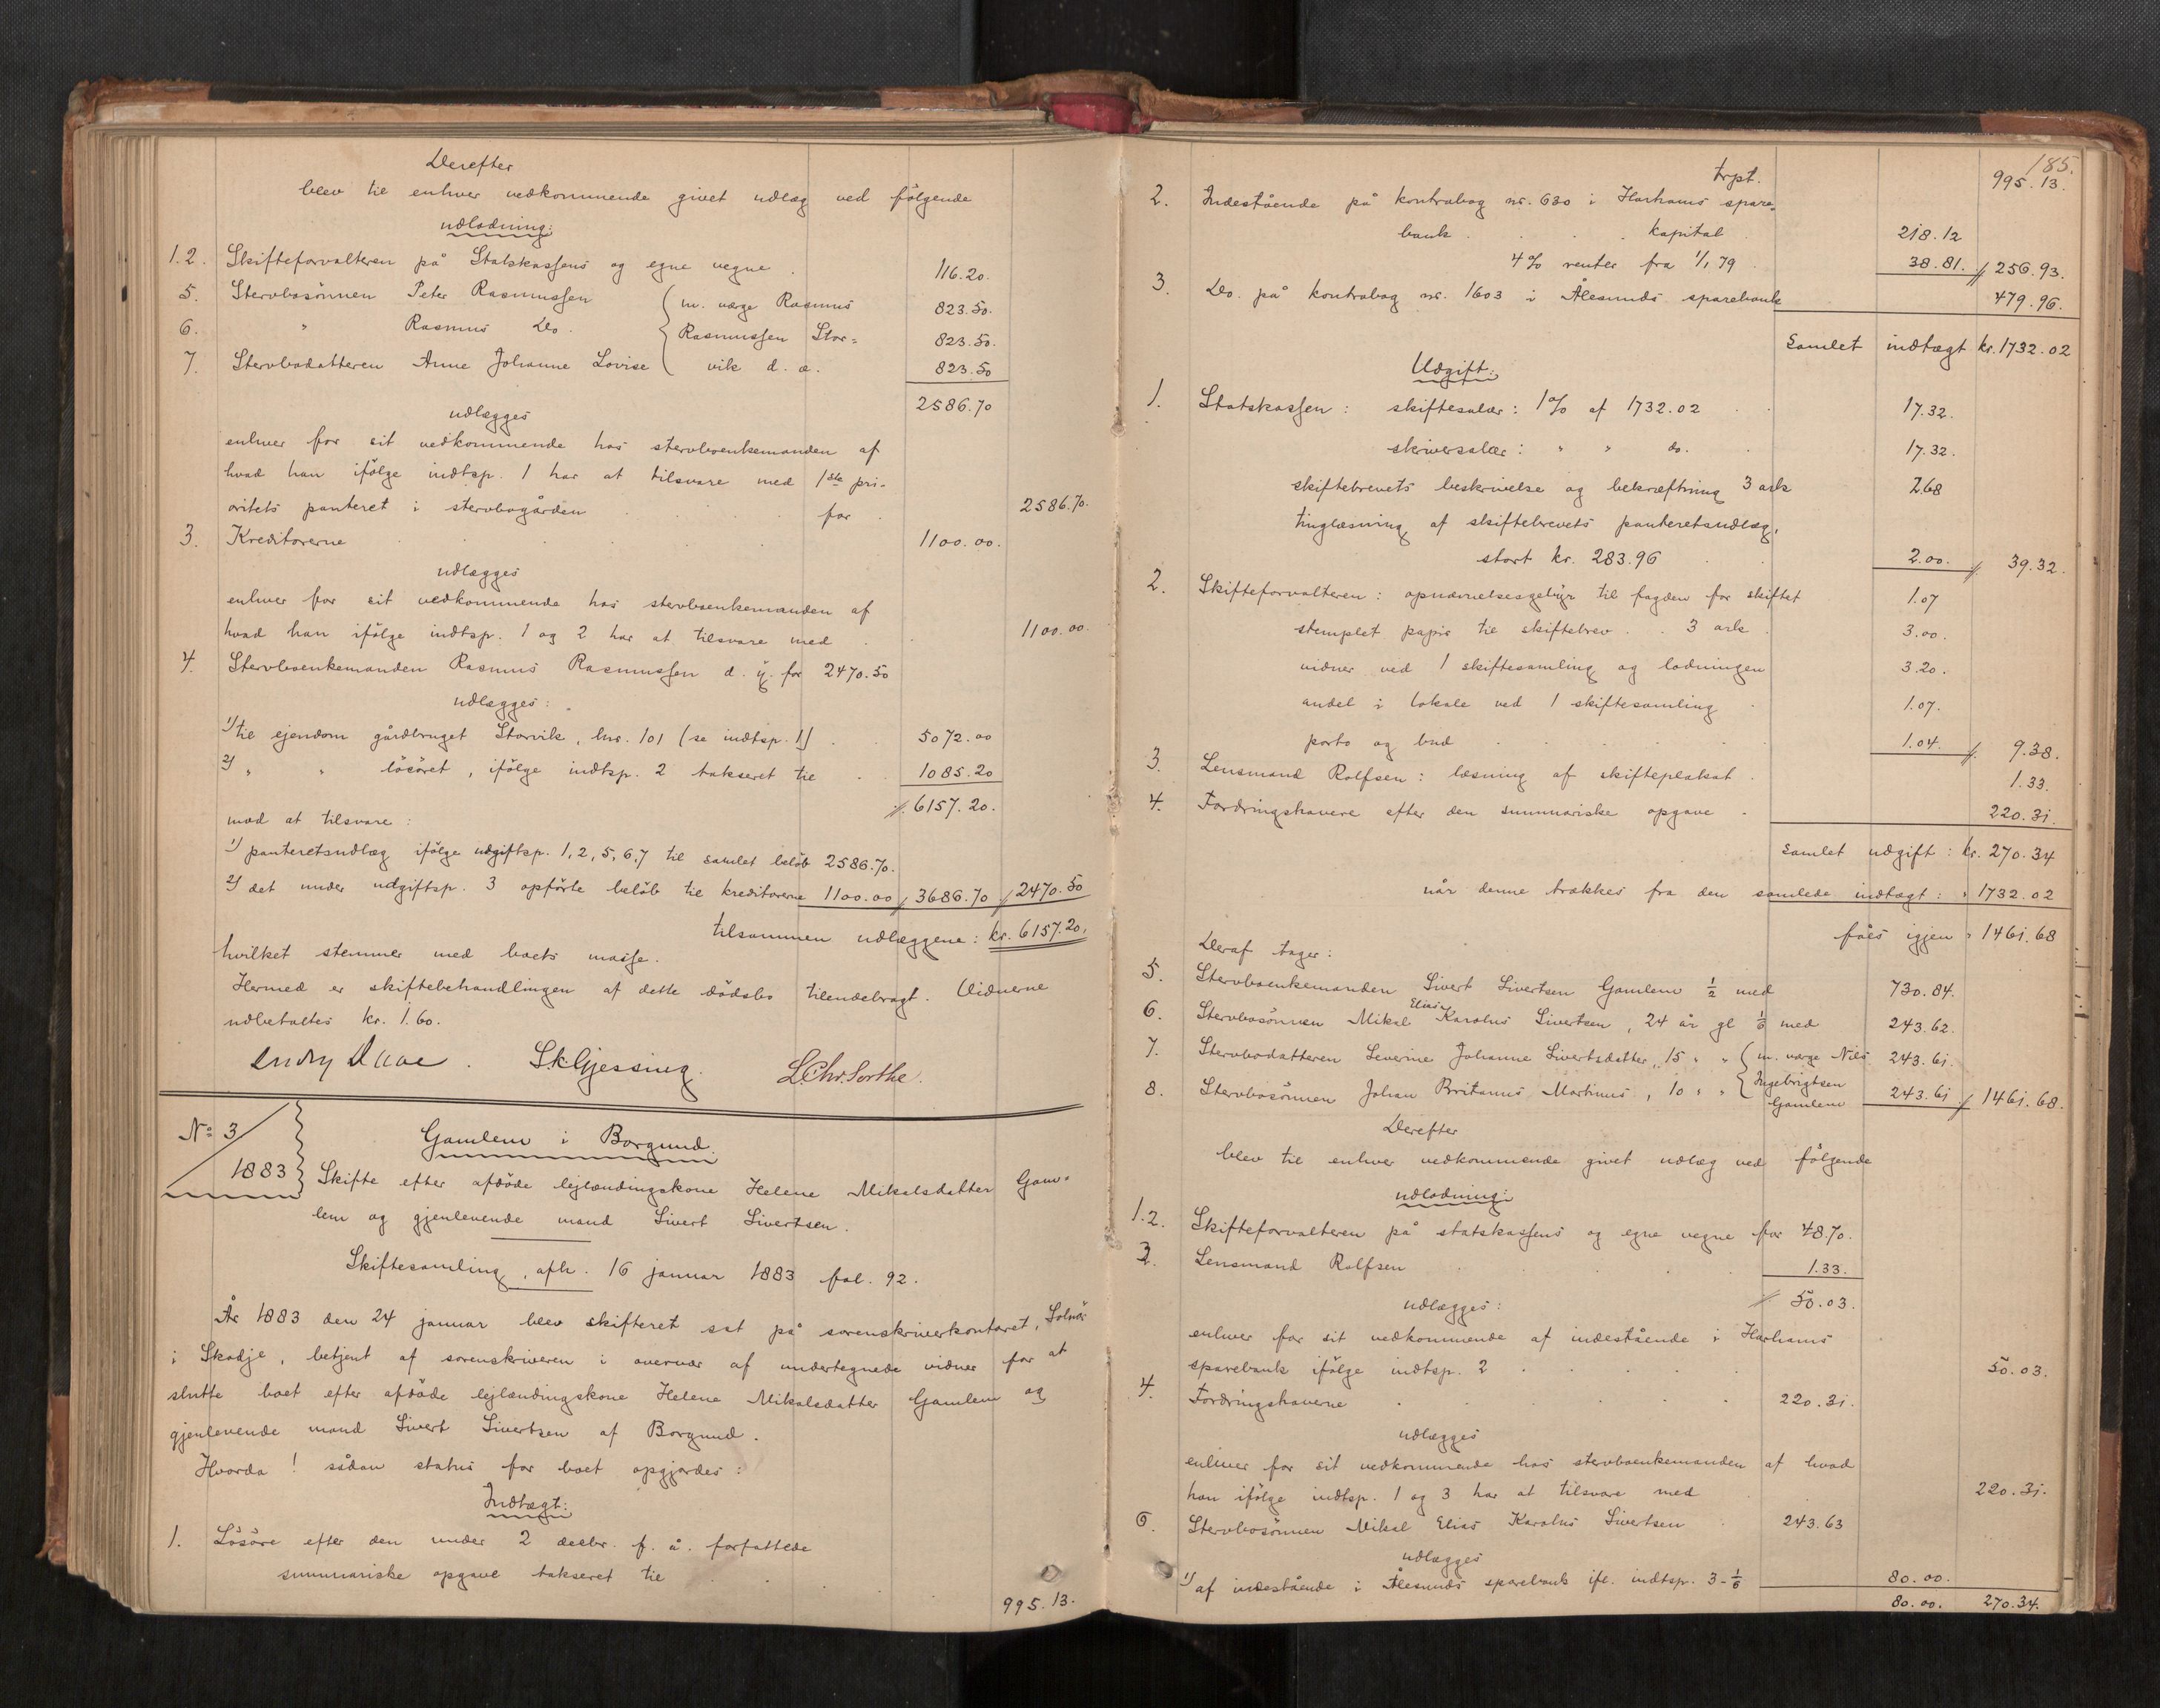 Derefter
blev til enhver vedkommende givet udlæg ved følgende
udlodning:
1.2. Skifteforvalteren på Statskassens og egne vegne . 116.20.
5. Stervbosönnen Peter Rasmussen ( m. værge Rasmus 823.50.
6. " Rasmus Do. Rasmussen Stor= 823.50.
7. Stervbodatteren Anne Johanne Lovise ( vik d. æ. 823.50
2586.70
udlægges
enhver for sit vedkommende hos stervboenkemanden af
hvad han ifölge indtsp. 1 har at tilsvare med 1ste pri-
oritets panteret i stervbogården . . . for . 2586.70.
3. Kreditorerne . . . . 1100.00.
udlægges
enhver for sit vedkommende hos stervboenkemanden af
hvad han ifölge indtsp. 1 og 2 har at tilsvare med . 1100.00.
4. Stervboenkemanden Rasmus Rasmussen d. y. for 2470.50
udlægges:
1) til ejendom gårdbruget Storvik, lnr. 101 (se indtsp. 1) . . 5072.00
2) " " lösöret, ifölge indtsp. 2 takseret til . 1085.20
6157.20.
mod at tilsvare:
1) panteretsudlæg ifölge udgiftsp. 1, 2, 5, 6, 7 til samlet belöb 2586.70.
2) det under udgiftsp. 3 opförte belöb til kreditorerne 1100.00 3686.70 2470.50
tilsammen udlæggene: kr. 6157.20.
hvilket stemmer med boets masse.
Hermed er skiftebehandlingen af dette dödsbo tilendebragt. Vidnerne
udbetaltes kr. 1.60.
Daae. Sk. Gjessing. L. Chr. Sorthe.
No 3 / 1883
Gamlem i Borgund.
Skifte efter afdöde lejlændingskone Helene Mikalsdatter Gam=
lem og gjenlevende mand Sivert Sivertsen.
Skiftesamling, afh. 16 januar 1883 fol. 92.
År 1883 den 24 januar blev skifteret sat på sorenskriverkontoret, Solnör
i Skodje, betjent af sorenskriveren i overvær af undertegnede vidner for at
slutte boet efter afdöde lejlændingskone Helene Mikalsdatter Gamlem og
gjenlevende mand Sivert Sivertsen af Borgund.
Hvorda! sådan status for boet opgjordes:
Indtægt:
1. Lösöre efter den under 2 decbr. f. å. forfattede
summariske opgave takseret til . . . 995.13.
185.
trpt. 995.13.
2. Indestående på kontrabog nr. 630 i Harhams spare=
bank . . . kapital . 218.12
4% renter fra 1/1 79 . 38.81. 256.93.
3. Do. på kontrabog nr. 1603 i Ålesunds sparebank 479.96.
Samlet indtægt kr. 1732.02
Udgift:
1. Statskassen: skiftesalær: 1% af 1732.02 . . 17.32.
skriversalær: " " do. . 17.32.
skiftebrevets beskrivelse og bekræftning 3 ark 2.68
tinglæsning af skiftebrevets panteretsudlæg,
stort kr. 283.96 . 2.00. 39.32.
2. Skifteforvalteren: opnævnelsesgebyr til fogden for skiftet 1.07
stemplet papir til skiftebrev . . 3 ark . 3.00.
vidner ved 1 skiftesamling og lodningen 3.20.
andel i lokale ved 1 skiftesamling . 1.07.
porto og bud . . . . 1.04. 9.38.
3. Lensmand Rolfsen: læsning af skifteplakat . 1.33.
4. Fordringshavere efter den summariske opgave . 220.31.
samlet udgift: kr. 270.34
når denne trækkes fra den samlede indtægt: " 1732.02
fåes igjen " 1461.68
Deraf tager:
5. Stervboenkemanden Sivert Sivertsen Gamlem 1/2 med 730.84.
6. Stervbosönnen Mikal Elias Karolus Sivertsen, 24 år gl 1/6 med 243.62.
7. Stervbodatteren Severine Johanne Sivertsdatter, 15 " " ( m. værge Nils 243.61.
8. Stervbosönnen Johan Britanus Martinus, 10 " " Ingebrigtsen Gamlem 243.61 1461.68.
Derefter
blev til enhver vedkommende givet udlæg ved fölgende
udlodning:
1.2. Skifteforvalteren på statskassens og egne vegne for 48.70.
3. Lensmand Rolfsen . . . 1.33.
50.03.
udlægges:
enhver for sit vedkommende af indestående i Harhams
sparebank ifölge indtsp. 2 . . . . 50.03.
4. Fordringshaverne . . . . 220.31.
udlægges
enhver for sit vedkommende hos stervboenkemanden af hvad
han ifölge indtsp. 1 og 3 har at tilsvare med . 220.31.
6. Stervbosönnen Mikal Elias Karolus Sivertsen . 243.63
udlægges
1) af indestående i Ålesunds sparebank ifl. indtsp. 3 - 1/6 80.00.
80.00. 270.34.